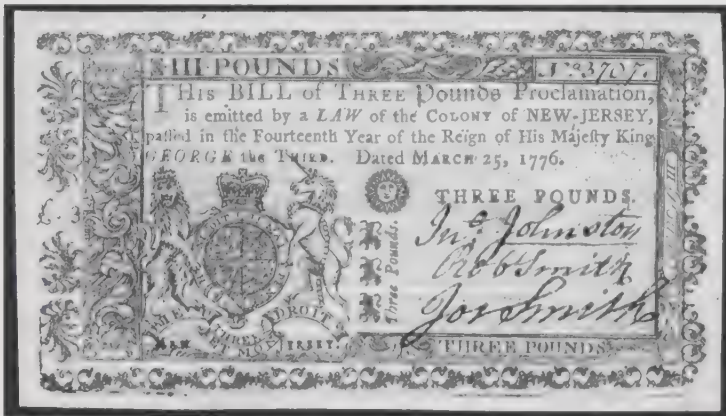 III POUNDS No. 3707.
THis BILL of THREE Pounds Proclamation,
is emitted by a LAW of the COLONY of NEW-JERSEY,
paſſed in the Fourteenth Year of the Reign of His Majeſty King
GEORGE the THIRD. Dated MARCH 25, 1776.
THREE POUNDS.
Three Pounds.
Jno. Johnston
Rob Smith
Jos Smith
DROIT
JERSEY.
THREE POUNDS